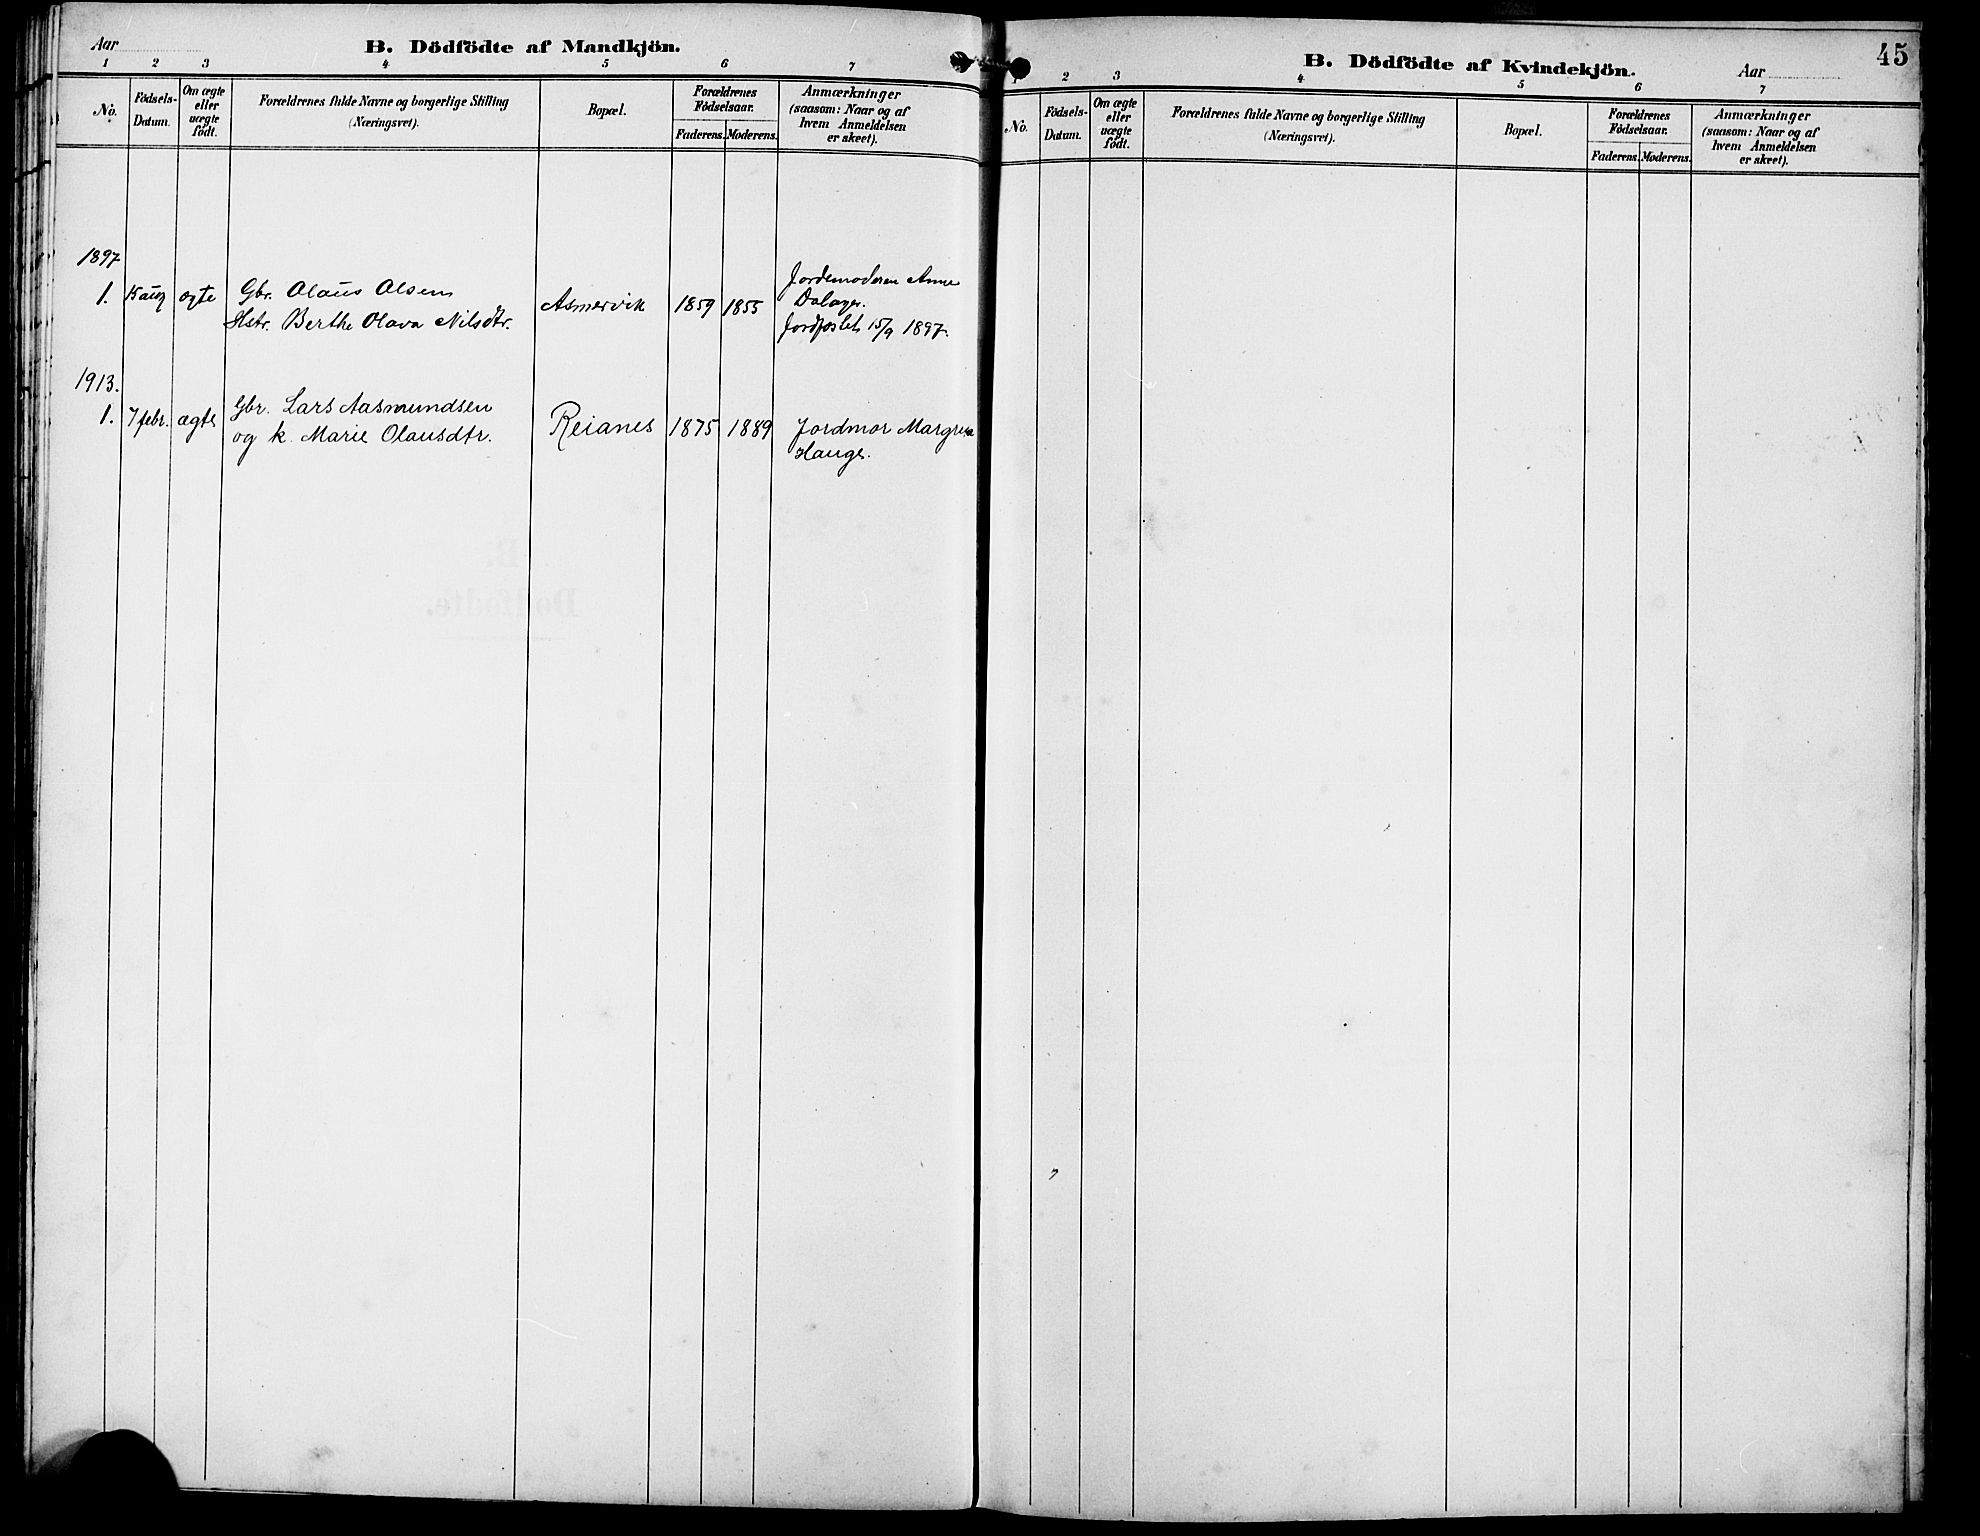 Aar
B. Dödfödte af Mandkjön.
1 2 3 4 5 6 7
No.
Födsels-
Datum.
Om ægte
eller
uægte
födt.
Forældrenes fulde Navne og borgerlige Stilling
(Næringsvei).
Bopæl.
Forældrenes
Födselsaar.
Faderens. Moderens.
Anmærkninger
(saasom: Naar og af
hvem Anmeldelsen
er skeet).
1897
1. 15 aug ægte Gbr. Olaus Olsen
Hstr. Berthe Olava Nilsdtr.
Asmervik 1859 1855
Jordemoderen Anne
Dalager.
Jordfæstet 15/9 1897.
1913.
1. 7 febr. ægte Gbr. Lars Aasmundsen
og k. Marie Olausdtr.
Reianes 1875 1889
Jordmor Margreta
Hauge.
B. Dödfödte af Kvindekjön.
Aar
45
1 2 3 4 5 6 7
No.
Födsels-
Datum.
Om ægte
eller
uægte
födt.
Forældrenes fulde Navne og borgerlige Stilling
(Næringsvei).
Bopæl.
Forældrenes
Födselsaar.
Faderens. Moderens.
Anmærkninger
(saasom: Naar og af
hvem Anmeldelsen
er skeet).